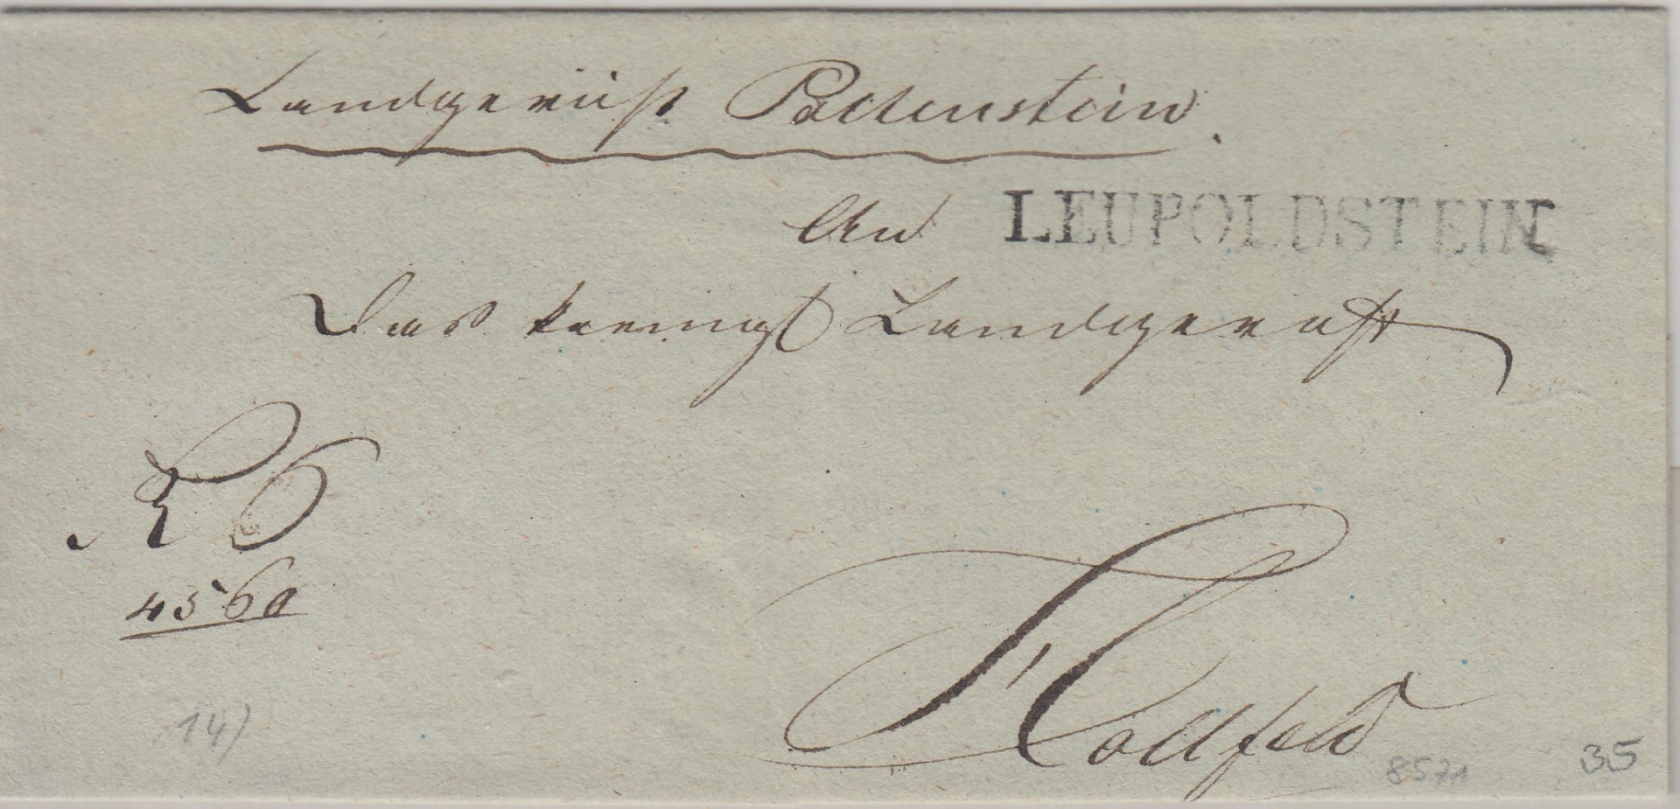 Landgericht Pottenstein.
An LEUPOLDSTEIN
Das koenigl Landgericht
R S
4560
Hollfeld
14)
8571 35